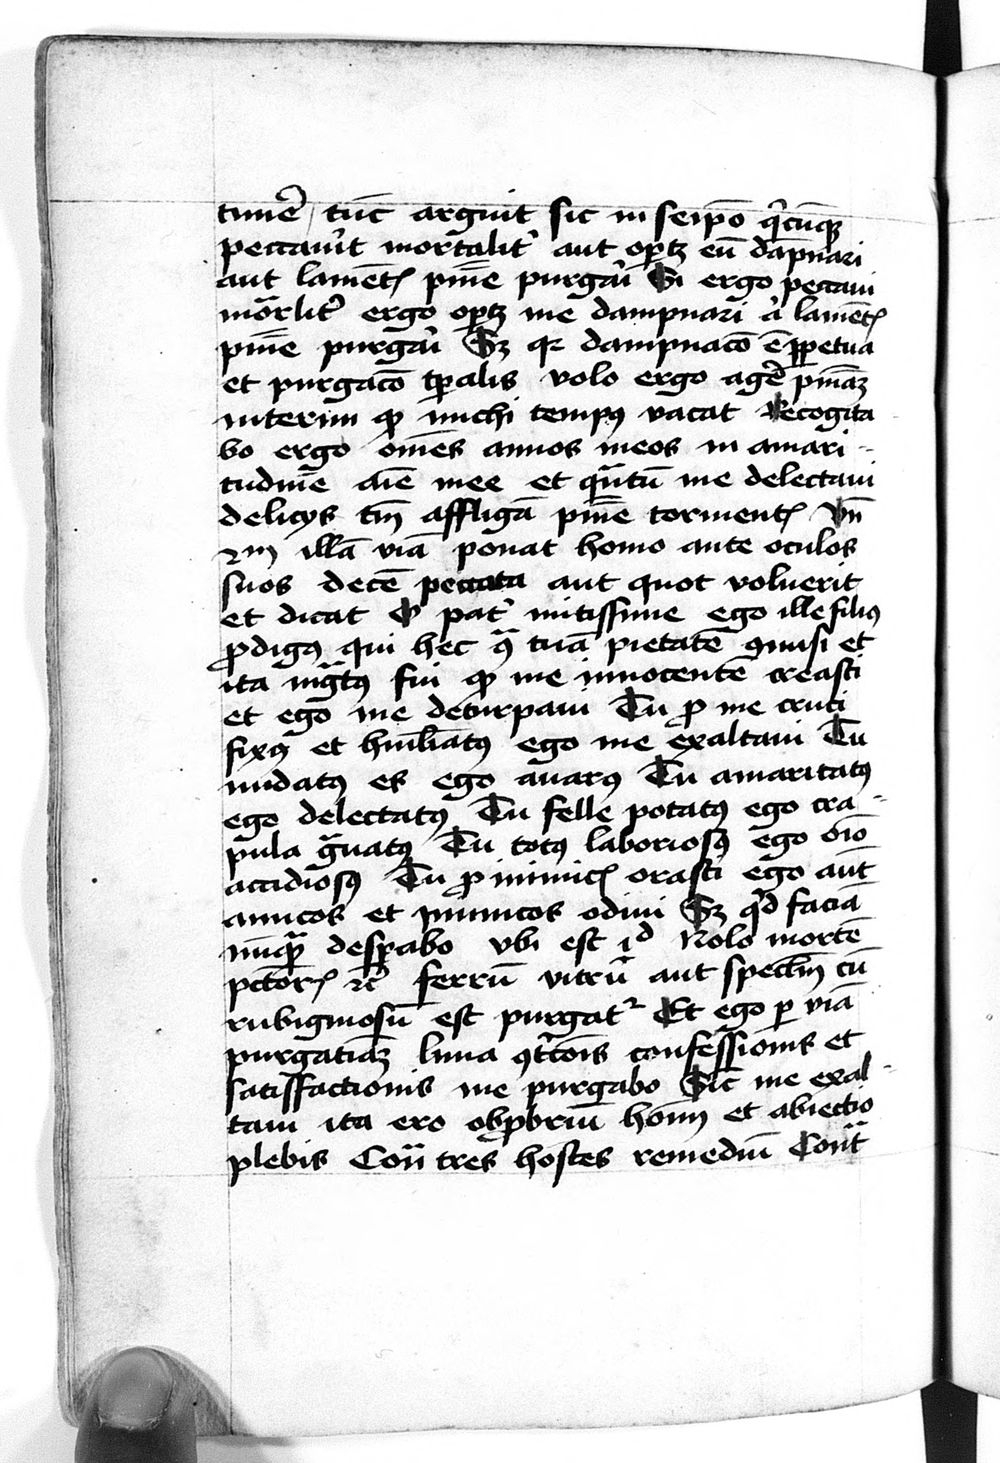 timē / tūc arguit sic in seip̄o q̄cūqȝ
peccauīt mortalit᷑ aut oportȝ eū dāpnari
aut lamētꝭ pnīe purgāi Si ergo peccaui
mōrlit᷑ ergo oportȝ me dampnari a͛ lamētꝭ
pnīe purgāi Sȝ qꝛ dampnac̄o ē ꝑpetua
et purgac̄o tꝑalis volo ergo agē pniāȝ
interim ꝙ michi tempꝰ vacat Recogita
bo ergo om̄es annos meos in amari-
tudīe aīe mee et qᷓntū me delectaui
delicijs tm̄ affligā pnīe tormentꝭ Vn̄
illā viā ponat homo ante oculos
suos decē peccata aut quot voluerit
et dicat O pat᷑ mitissime ego ille filiꝰ
ꝓdigꝰ qui hec ꝯᷓ tuā pietatē ꝯmisi et
ita ingᷓtꝰ fui ꝙ me innocentē creasti
et ego me deturpaui Tu ꝓ me cruci
fixꝰ et humiliatꝰ ego me exaltaui Tu
nudatꝰ es ego auarꝰ Tu amaritatꝰ
ego delectatꝰ Tu felle potatꝰ ego cra-
pula gᷓuatꝰ Tu totꝰ laboriosꝰ ego oīo
accidiosꝰ Tu ꝓ inimicꝭ orasti ego aūt
amicos et inimicos odiui Sȝ qͥd faciā
nūqᷓꝫ desꝑabo vbi est iᵈ Nolo mortē
pctōrꝭ ꝛc̄ ferrū vitrū aut specl̄m cū
rubiginosū est purgatᷣ Et ego ꝑ viā
purgatiāȝ lima ꝯtⁱcōis confessionis et
satisffactionis me purgabo Sic̄ me exal-
taui ita ero obꝓbriū hoīm et abiectio
plebis Cont᷑ tres hostes remediū Contᷓ